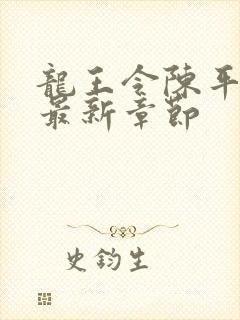 龍王令陳平
最新章節
史鈞生